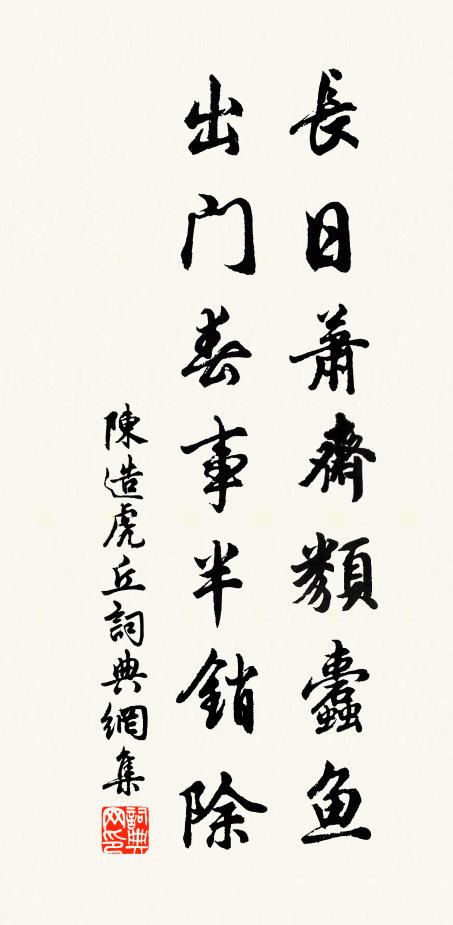 長日蕭齋類蠹鱼
出门春事半銷除
陳造虎丘詞典網集
詞典网印